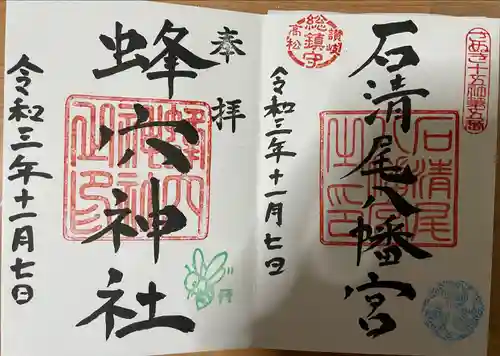 さぬき十五社第五番
石清尾八幡宮
讃岐
総鎮守
高松
石清尾八幡宮之印
令和三年十一月七日
奉拝
蜂穴神社
令和三年十一月七日